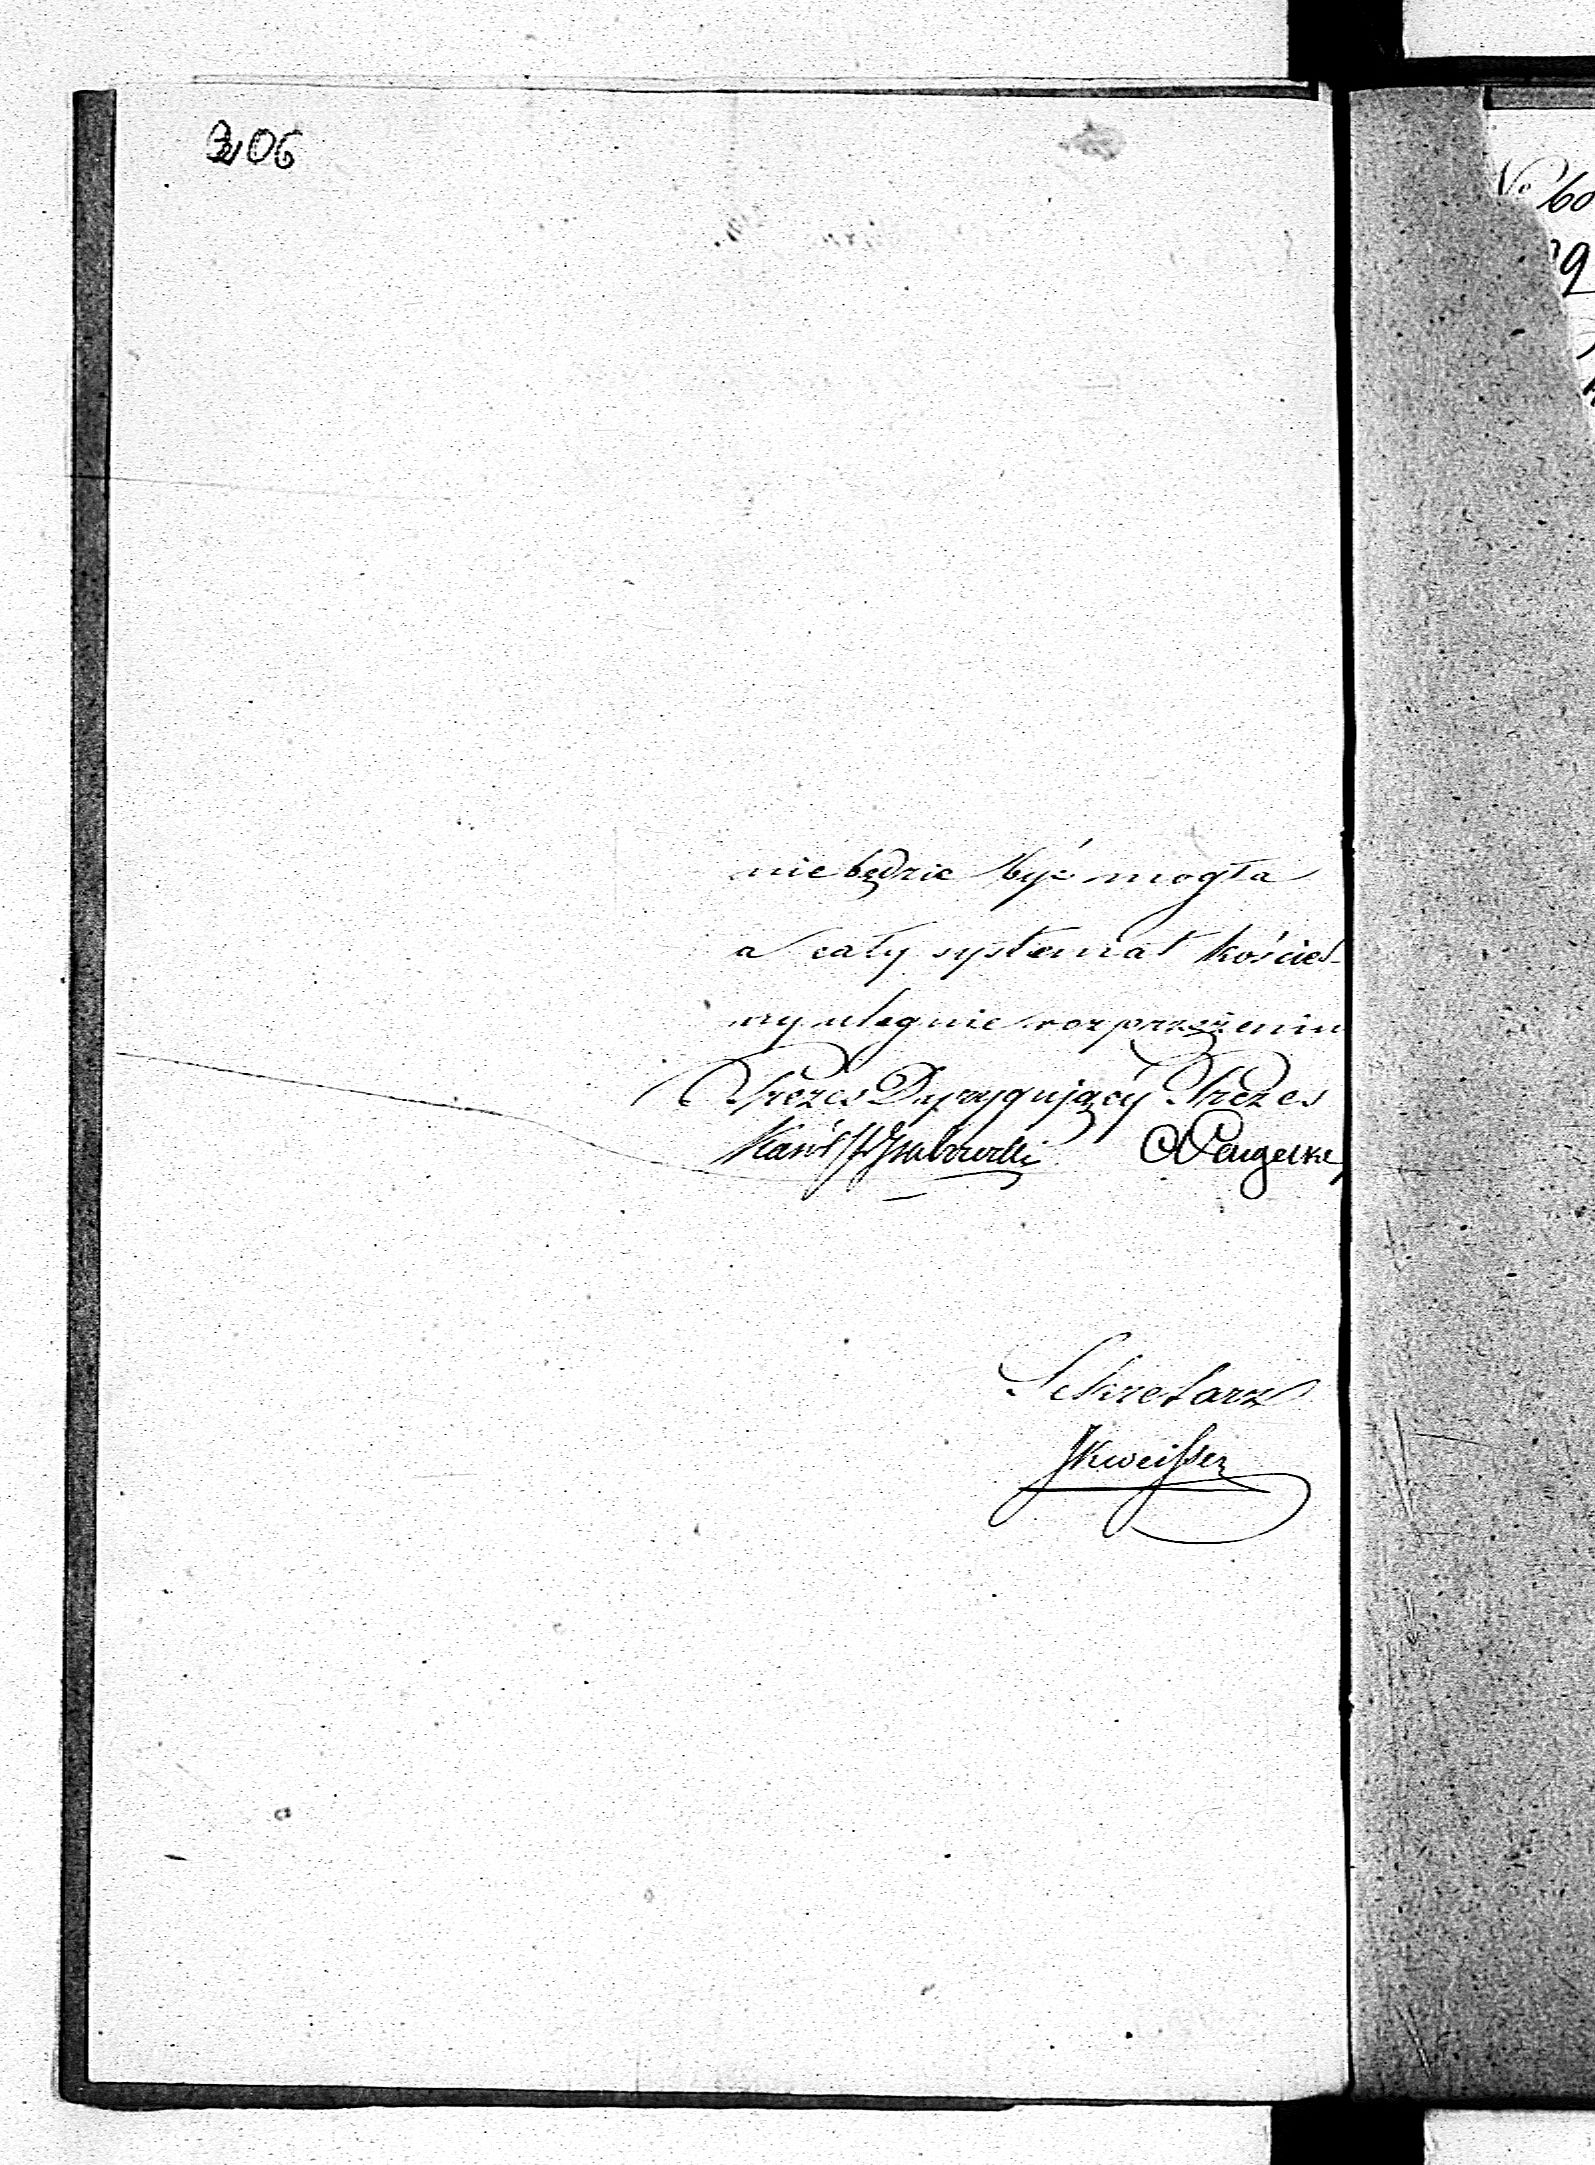 206
No 60
niebędzie być mogła
a cały systemat koście-
ny ulegnie rozprzężeniu
Prezes Dyrygujący Prezes
Karól
Sekretarz
JKweisser